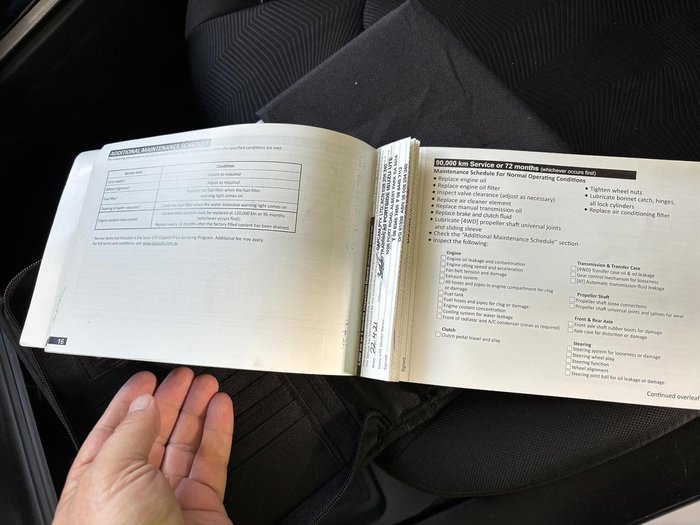 ADDITIONAL MAINTENANCE SCHEDULE
Service Item
Condition
Tyre rotation*
Rotate as required
Wheel alignment*
Adjust as required
Fuel filter*
Replace the fuel filter when the fuel filter
warning light comes on
Draining of water separator*
Drain the fuel filter when the water separator warning light comes on
Engine coolant replacement
Factory-filled coolant must be replaced at 120,000 km or 96 months
(whichever occurs first).
Replace every 24 months after the factory-filled coolant has been drained.
*Service items not included in the Isuzu UTE Capped Price Servicing Program. Additional fee may apply.
For full terms and conditions, visit www.isuzuute.com.au
16
22.4.21
Signed
90,000 km Service or 72 months (whichever occurs first)
Maintenance Schedule For Normal Operating Conditions
• Replace engine oil
• Replace engine oil filter
• Inspect valve clearance (adjust as necessary)
• Replace air cleaner element
• Replace manual transmission oil
• Replace brake and clutch fluid
• Lubricate [4WD] propeller shaft universal joints
and sliding sleeve
• Check the "Additional Maintenance Schedule" section
• Inspect the following:
• Tighten wheel nuts
• Lubricate bonnet catch, hinges,
all lock cylinders
• Replace air conditioning filter
Engine
Engine oil leakage and contamination
Engine idling speed and acceleration
Fan belt tension and damage
Exhaust system
All hoses and pipes in engine compartment for clog
or damage
Fuel tank
Fuel hoses and pipes for clog or damage
Engine coolant concentration
Cooling system for water leakage
Front of radiator and A/C condenser (clean as required)
Clutch
Clutch pedal travel and play
Transmission & Transfer Case
[4WD] Transfer case oil & oil leakage
Gear control mechanism for looseness
[AT] Automatic transmission fluid leakage
Propeller Shaft
Propeller shaft loose connections
Propeller shaft universal joints and splines for wear
Front & Rear Axle
Front axle shaft rubber boots for damage
Axle case for distortion or damage
Steering
Steering system for looseness or damage
Steering wheel play
Steering function
Wheel alignment
Steering joint ball for oil leakage or damage
Continued overleaf